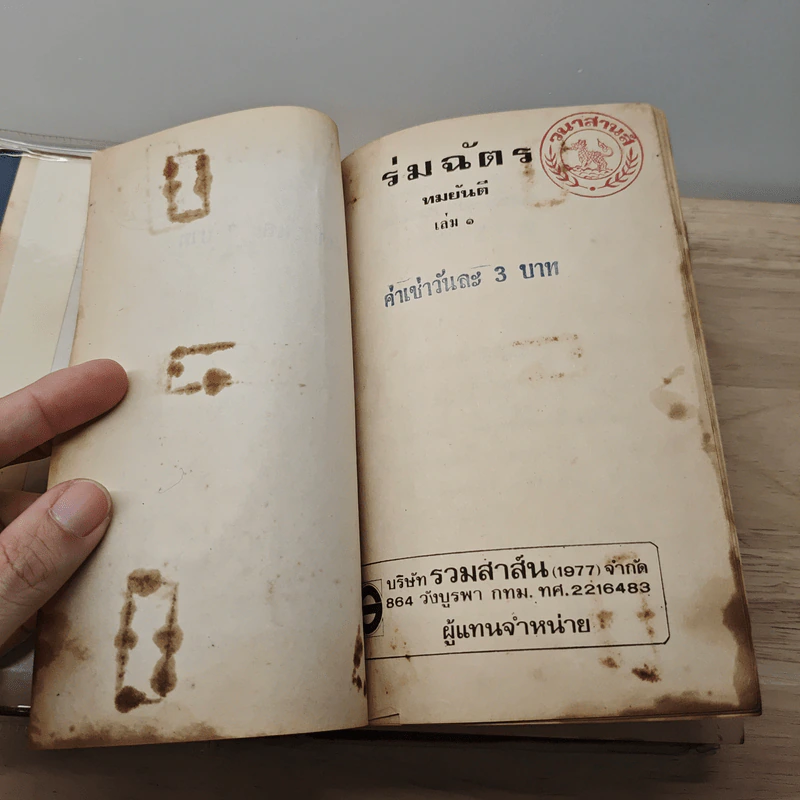 ร่มฉัตร
วนาสาณฑ์
ทมยันตี
เล่ม ๑
ค่าเช่าวันละ 3 บาท
บริษัท รวมสาส์น (1977) จำกัด
864 วังบูรพา กทม. ทศ.2216483
ผู้แทนจำหน่าย